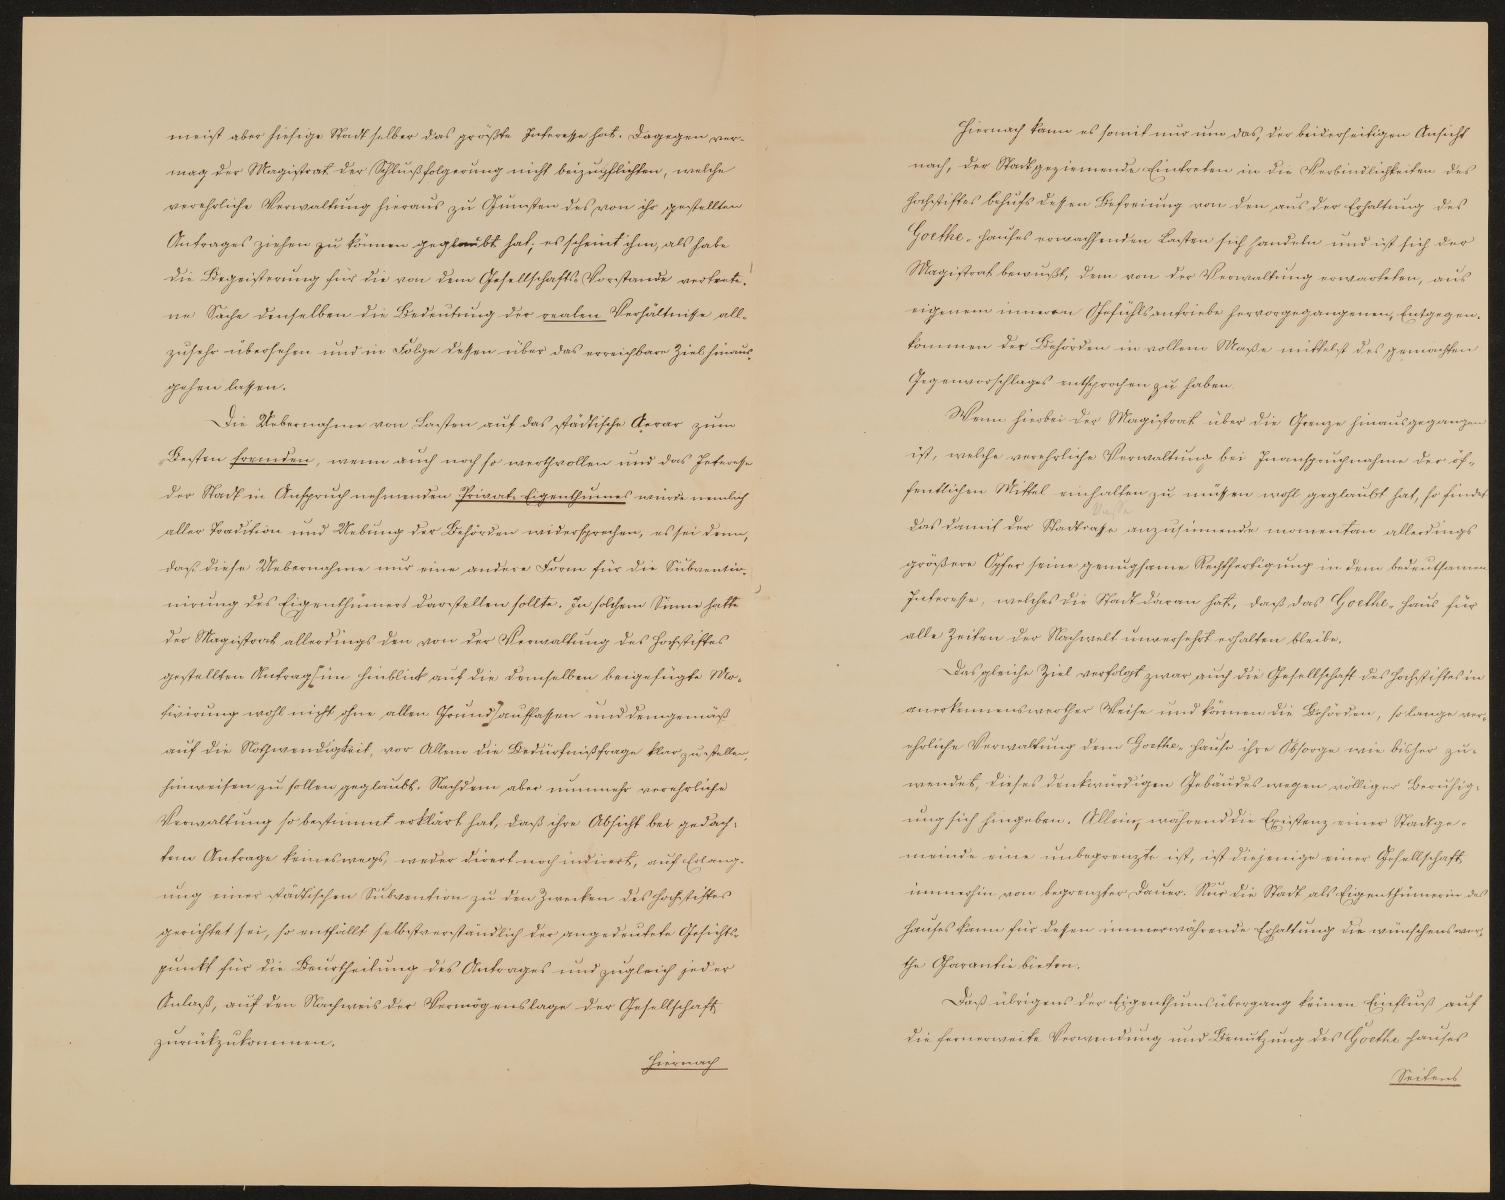 meist aber hiesige Stadt selber das größte Interesse hat. Dagegen ver-
mag der Magistrat der Schlußfolgerung nicht beizupflichten, welche
verehrliche Verwaltung hieraus zu Gunsten des von ihr gestellten
Antrages ziehen zu können geglaubt hat; es scheint ihm, als habe
die Begeisterung für die von dem Gesellschafts-Vorstande vertrete-
ne Sache denselben die Bedeutung der realen Verhältnisse all-
zusehr übersehen und in Folge dessen über das erreichbare Ziel hinaus-
gehen lassen.
Die Uebernahme von Lasten auf das städtische Aerar zum
Besten fremden, wenn auch noch so werthvollen und das Interesse
der Stadt in Anspruch nehmenden Privat-Eigenthumes würde nemlich
aller Tradition und Uebung der Behörden widersprechen, es sei denn,
daß diese Uebernahme nur eine andere Form für die Subventio-
nirung des Eigenthümers darstellen sollte. In solchem Sinne hatte
der Magistrat allerdings den von der Verwaltung des Hochstiftes
gestellten Antrag (im Hinblick auf die demselben beigefügte Mo-
tivirung wohl nicht ohne allen Grund) auffassen und demgemäß
auf die Nothwendigkeit, vor Allem die Bedürfnißfrage klar zu stellen,
hinweisen zu sollen geglaubt. Nachdem aber nunmehr verehrliche
Verwaltung so bestimmt erklärt hat, daß ihre Absicht bei gedach-
tem Antrage keineswegs, weder direct noch indirect, auf Erlang-
ung einer städtischen Subvention zu den Zwecken des Hochstiftes
gerichtet sei, so entfällt selbstverständlich der angedeutete Gesichts-
punkt für die Beurtheilung des Antrages und zugleich jeder
Anlaß, auf den Nachweis der Vermögenslage der Gesellschaft
zurückzukommen.
Hiernach
Hiernach kann es somit nur um das, der beiderseitigen Ansicht
nach, der Stadt geziemende Eintreten in die Verbindlichkeiten des
Hochstiftes behufs dessen Befreiung von den aus der Erhaltung des
Goethe-Hauses erwachsenden Lasten sich handeln und ist sich der
Magistrat bewußt, dem von der Verwaltung erwarteten, aus
eigenem inneren Gefühlsantriebe hervorgegangenen, Entgegen-
kommen der Behörden in vollem Maße mittelst des gemachten
Gegenvorschlages entsprochen zu haben.
Wenn hierbei der Magistrat über die Grenze hinausgegangen
ist, welche verehrliche Verwaltung bei Inanspruchnahme der öf-
fentlichen Mittel einhalten zu müssen wohl geglaubt hat, so findet
das damit der Stadtkasse anzusinnende momentan allerdings
größere Opfer seine genugsame Rechtfertigung in dem bedeutsamen
Interesse, welches die Stadt daran hat, daß das Goethe-Haus für
alle Zeiten der Nachwelt unversehrt erhalten bleibe.
Das gleiche Ziel verfolgt zwar auch die Gesellschaft des Hochstiftes in
anerkennenswerther Weise und können die Behörden, so lange ver-
ehrliche Verwaltung dem Goethe-Hause ihre Obsorge wie bisher zu-
wendet, dieses denkwürdigen Gebäudes wegen völliger Beruhig-
ung sich hingeben. Allein, während die Existenz einer Stadtge-
meinde eine unbegrenzte ist, ist diejenige einer Gesellschaft
immerhin von begrenzter Dauer. Nur die Stadt als Eigenthümerin des
Hauses kann für dessen immerwährende Erhaltung die wünschenswer-
the Garantie bieten.
Daß übrigens der Eigenthumsübergang keinen Einfluß auf
die fernerweite Verwendung und Benutzung des Goethe Hauses
Seitens